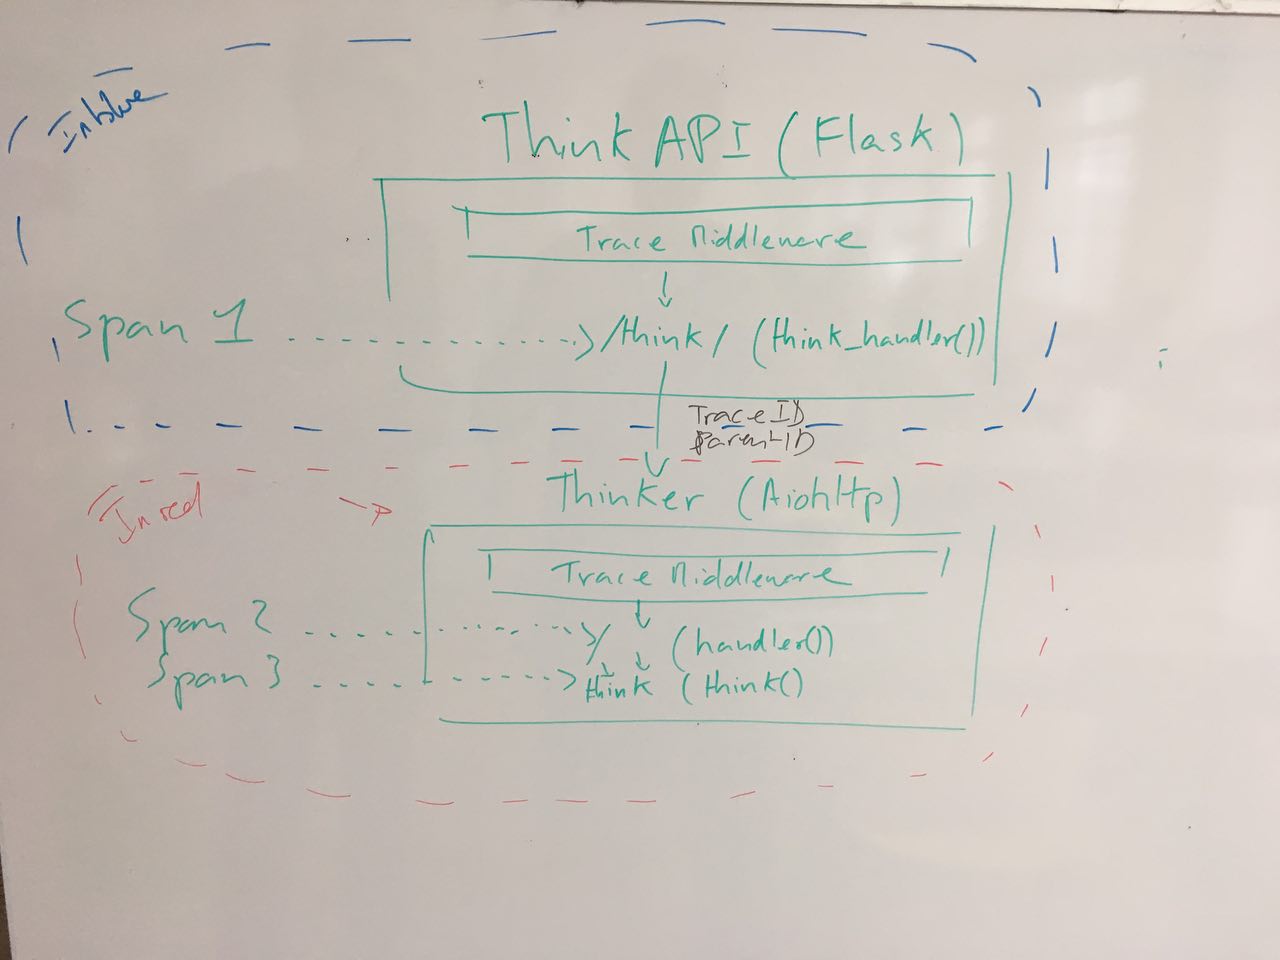 In blue
Think API (Flask)
Trace Middleware
Span 1
/think/ (think_handler())
TraceID
ParentID
In red
Thinker (Aiohttp)
Trace Middleware
Span 2
/ (handler())
Span 3
think (think()